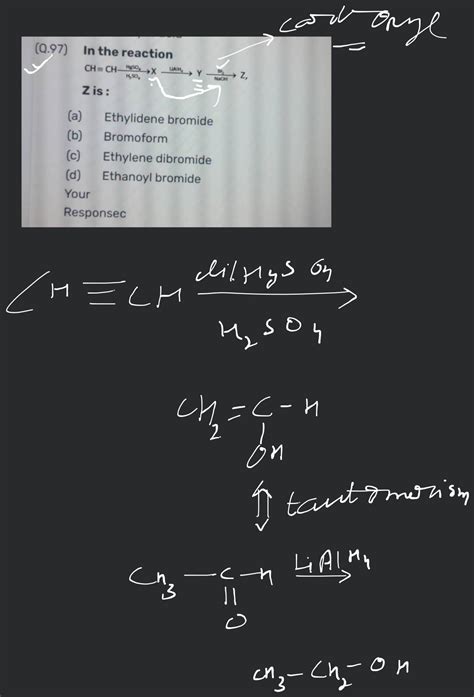 carbonyl
(Q.97) In the reaction
CH = CH HgSO₄ H₂SO₄ X LiAlH₄ Y Br₂ NaOH Z,
Z is :
(a) Ethylidene bromide
(b) Bromoform
(c) Ethylene dibromide
(d) Ethanoyl bromide
Your
Responsec
CH ≡ CH dil HgSO₄
H₂SO₄
CH₂ = C - H
OH
tautomerism
CH₃ - C - H LiAlH₄
O
CH₃ - CH₂ - OH